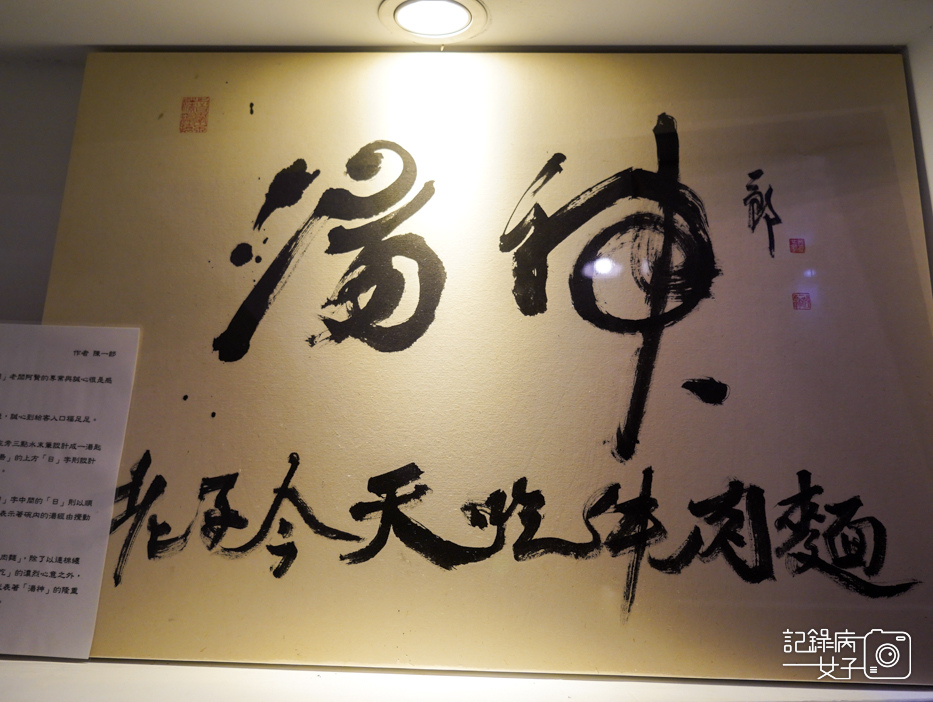 湯神
一郎
老子今天吃牛肉麵
作者 陳一郎
」老闆阿賢的專業與誠心很是感
，誠心到給客人口福足足。
旁三點水末筆設計成一湯匙
」的上方「日」字則設計
」字中間的「日」則以順
表示著碗內的湯經由攪動
肉麵」，除了以連根纏
吃」的濃烈心意之外，
表著「湯神」的隆重
記錄病
女子